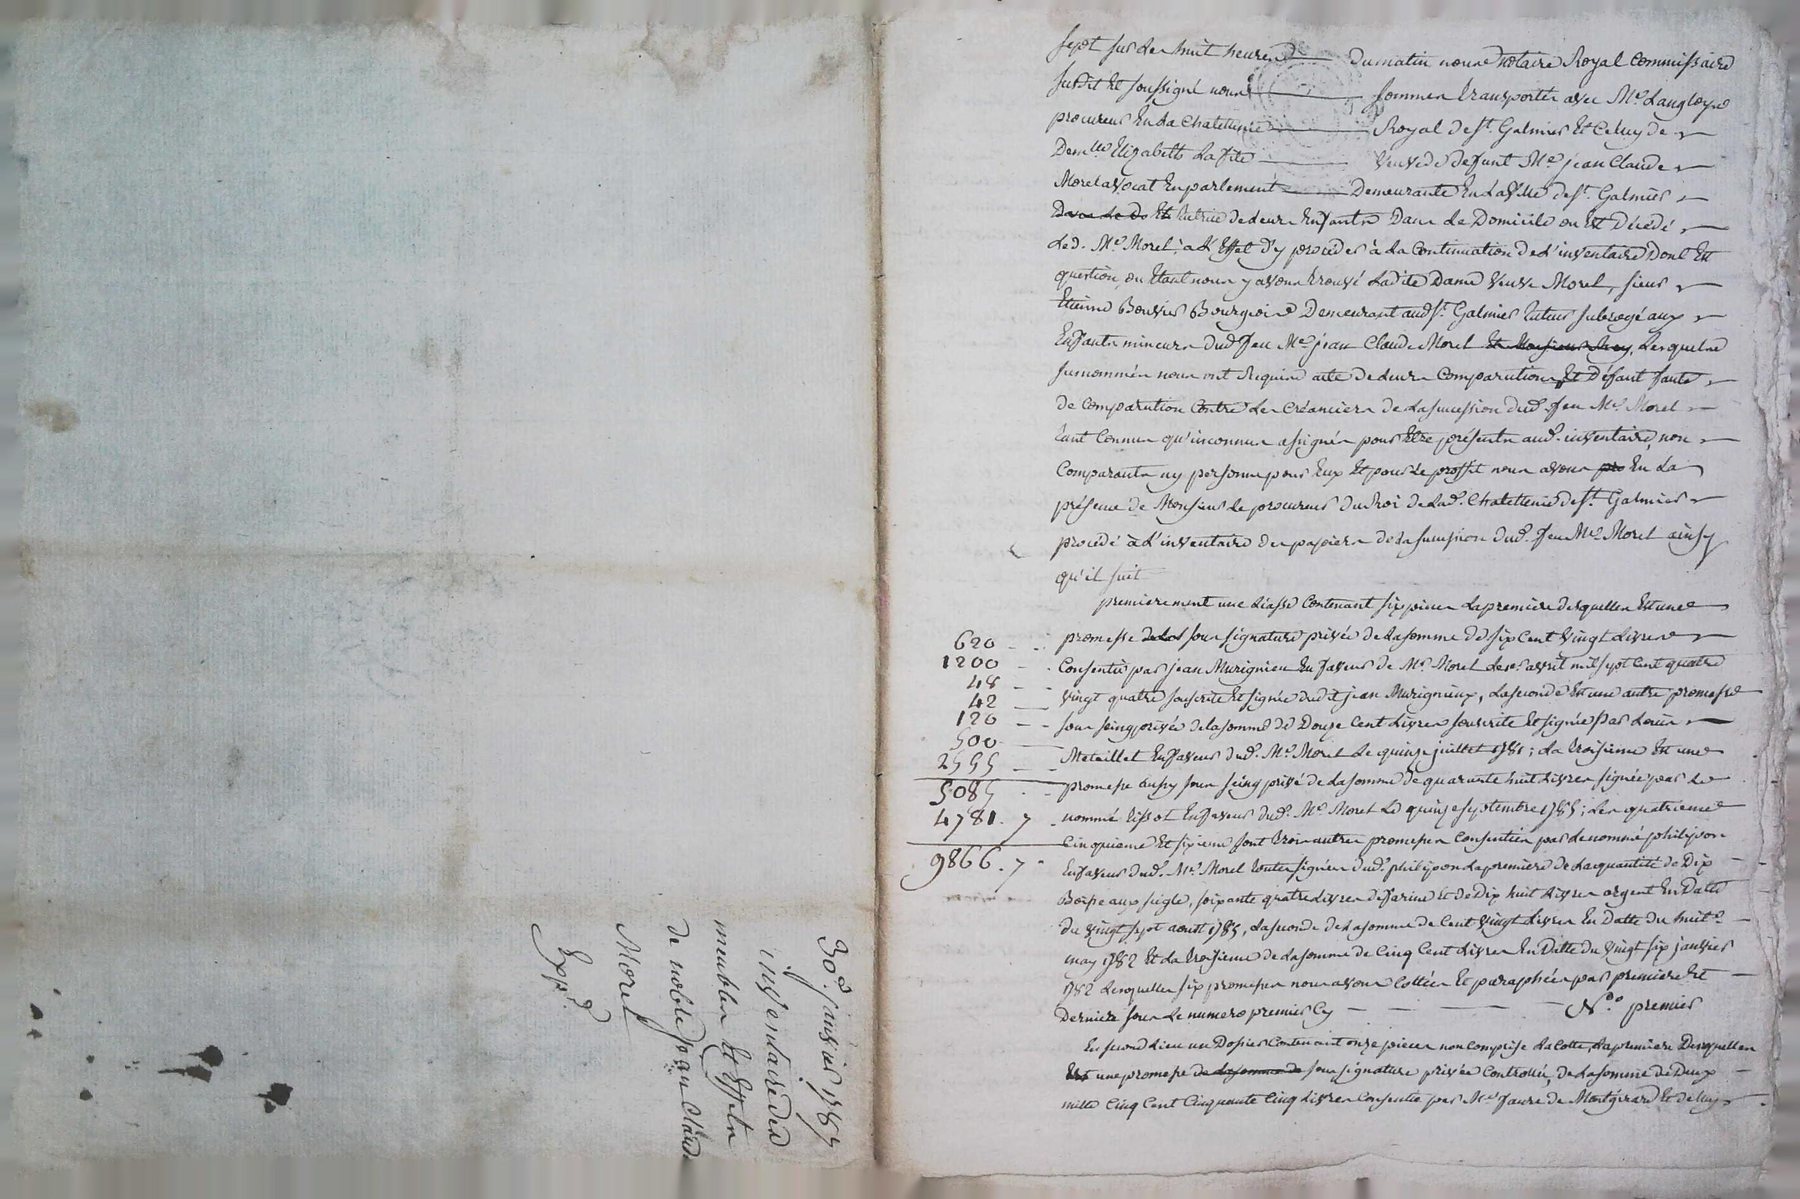 30e. janvier 1787
inventaire des
meubles Et Effets
de noble jean Claude
Morel
Exp.d
sept sur les huit heures du matin nous Notaire Royal Commissaire
susdit Et soussigné nous sommes transportés avec Me. Langloys
procureur En la Chatellenie Royal de St. Galmier Et Celuy de
Demlle. Elizabeth Lafite Veuve de defunt Me. jean Claude
Morel avocat En parlement Demeurante En la Ville de St. Galmier
Dans Le Do Et tutrice de deux Enfants Dans Le Domicile ou Est Décédé
Led. Me. Morel, a L'Effet d'y proceder à La Continuation de L'inventaire Dont Est
question, ou Etant nous y avons trouvé Ladite Dame Veuve Morel, sieur
Etienne Bouvier Bourgeois Demeurant aud. St. Galmier tuteur subrogé aux
Enfants mineurs dud. feu Me. jean Claude Morel Lesquels
surnommés nous ont Requis acte de Leurs Comparutions, Et Défaut faute
de Comparution Contre Les Créanciers de La succession dud. feu Me. Morel
tant Connus qu'inconnus assignés pour Etre présents aud. inventaire, non
Comparants ny personne pour Eux Et pour Le proffit nous avons pro En La
présence de Monsieur Le procureur du Roi de Lad. Chatellenie de St. Galmier
procedé à L'inventaire des papiers de La succession dud. feu Me. Morel ainsy
qu'il suit
premierement une Liasse Contenant six pieces La premiere desquelles Est une
620 promesse de La sous signature privée de La somme de six Cent Vingt Livres
1200 Consentie par jean Murignieu En faveur de Me. Morel avril mil sept Cent quatre
48 Vingt quatre souscrite Et signée dudit jean Murignieux, La seconde Est une autre promesse
42
120 sous seing privée de La somme de Douze Cent Livres souscrite Et signée par Louis
500 Mataillet En faveur dud. Me. Morel Le quinze juillet 1781; La troisieme Est une
2555 promesse aussy sous seing privé de La somme de quarante huit Livres signée par Le
5085
4781. 7 nommé tissot En faveur dud. Me. Morel Le quinze septembre 1785; Les quatrieme
Cinquieme Et sixieme sont trois autres promesses Consenties par Le nommé philipon
9866. 7 En faveur dud. Me. Morel toutes signées dud. philipon La premiere de La quantité de Dix
Boisseaux seigle, soixante quatre Livres de farine Et de Dix huit Livres argent En Datte
du Vingt sept aoutt 1785, La seconde de La somme de Cent Vingt Livres En Datte du huit
may 1782 Et La troisieme de La somme de Cinq Cent Livres En Datte du Vingt six janvier
1782 Lesquelles six promesses nous avons Cottées Et paraphées par premiere Et
Derniere sous Le numero premier Cy No. premier
En second Lieu un Dossier Contenant onze pieces non Comprise La Cotte, La premiere Desquelles
Est une promesse de La somme de sous signature privée Controllée, de La somme de Deux
mille Cinq Cent Cinquante Cinq Livres Consentie par Me. faure de Montgirard Et de luy